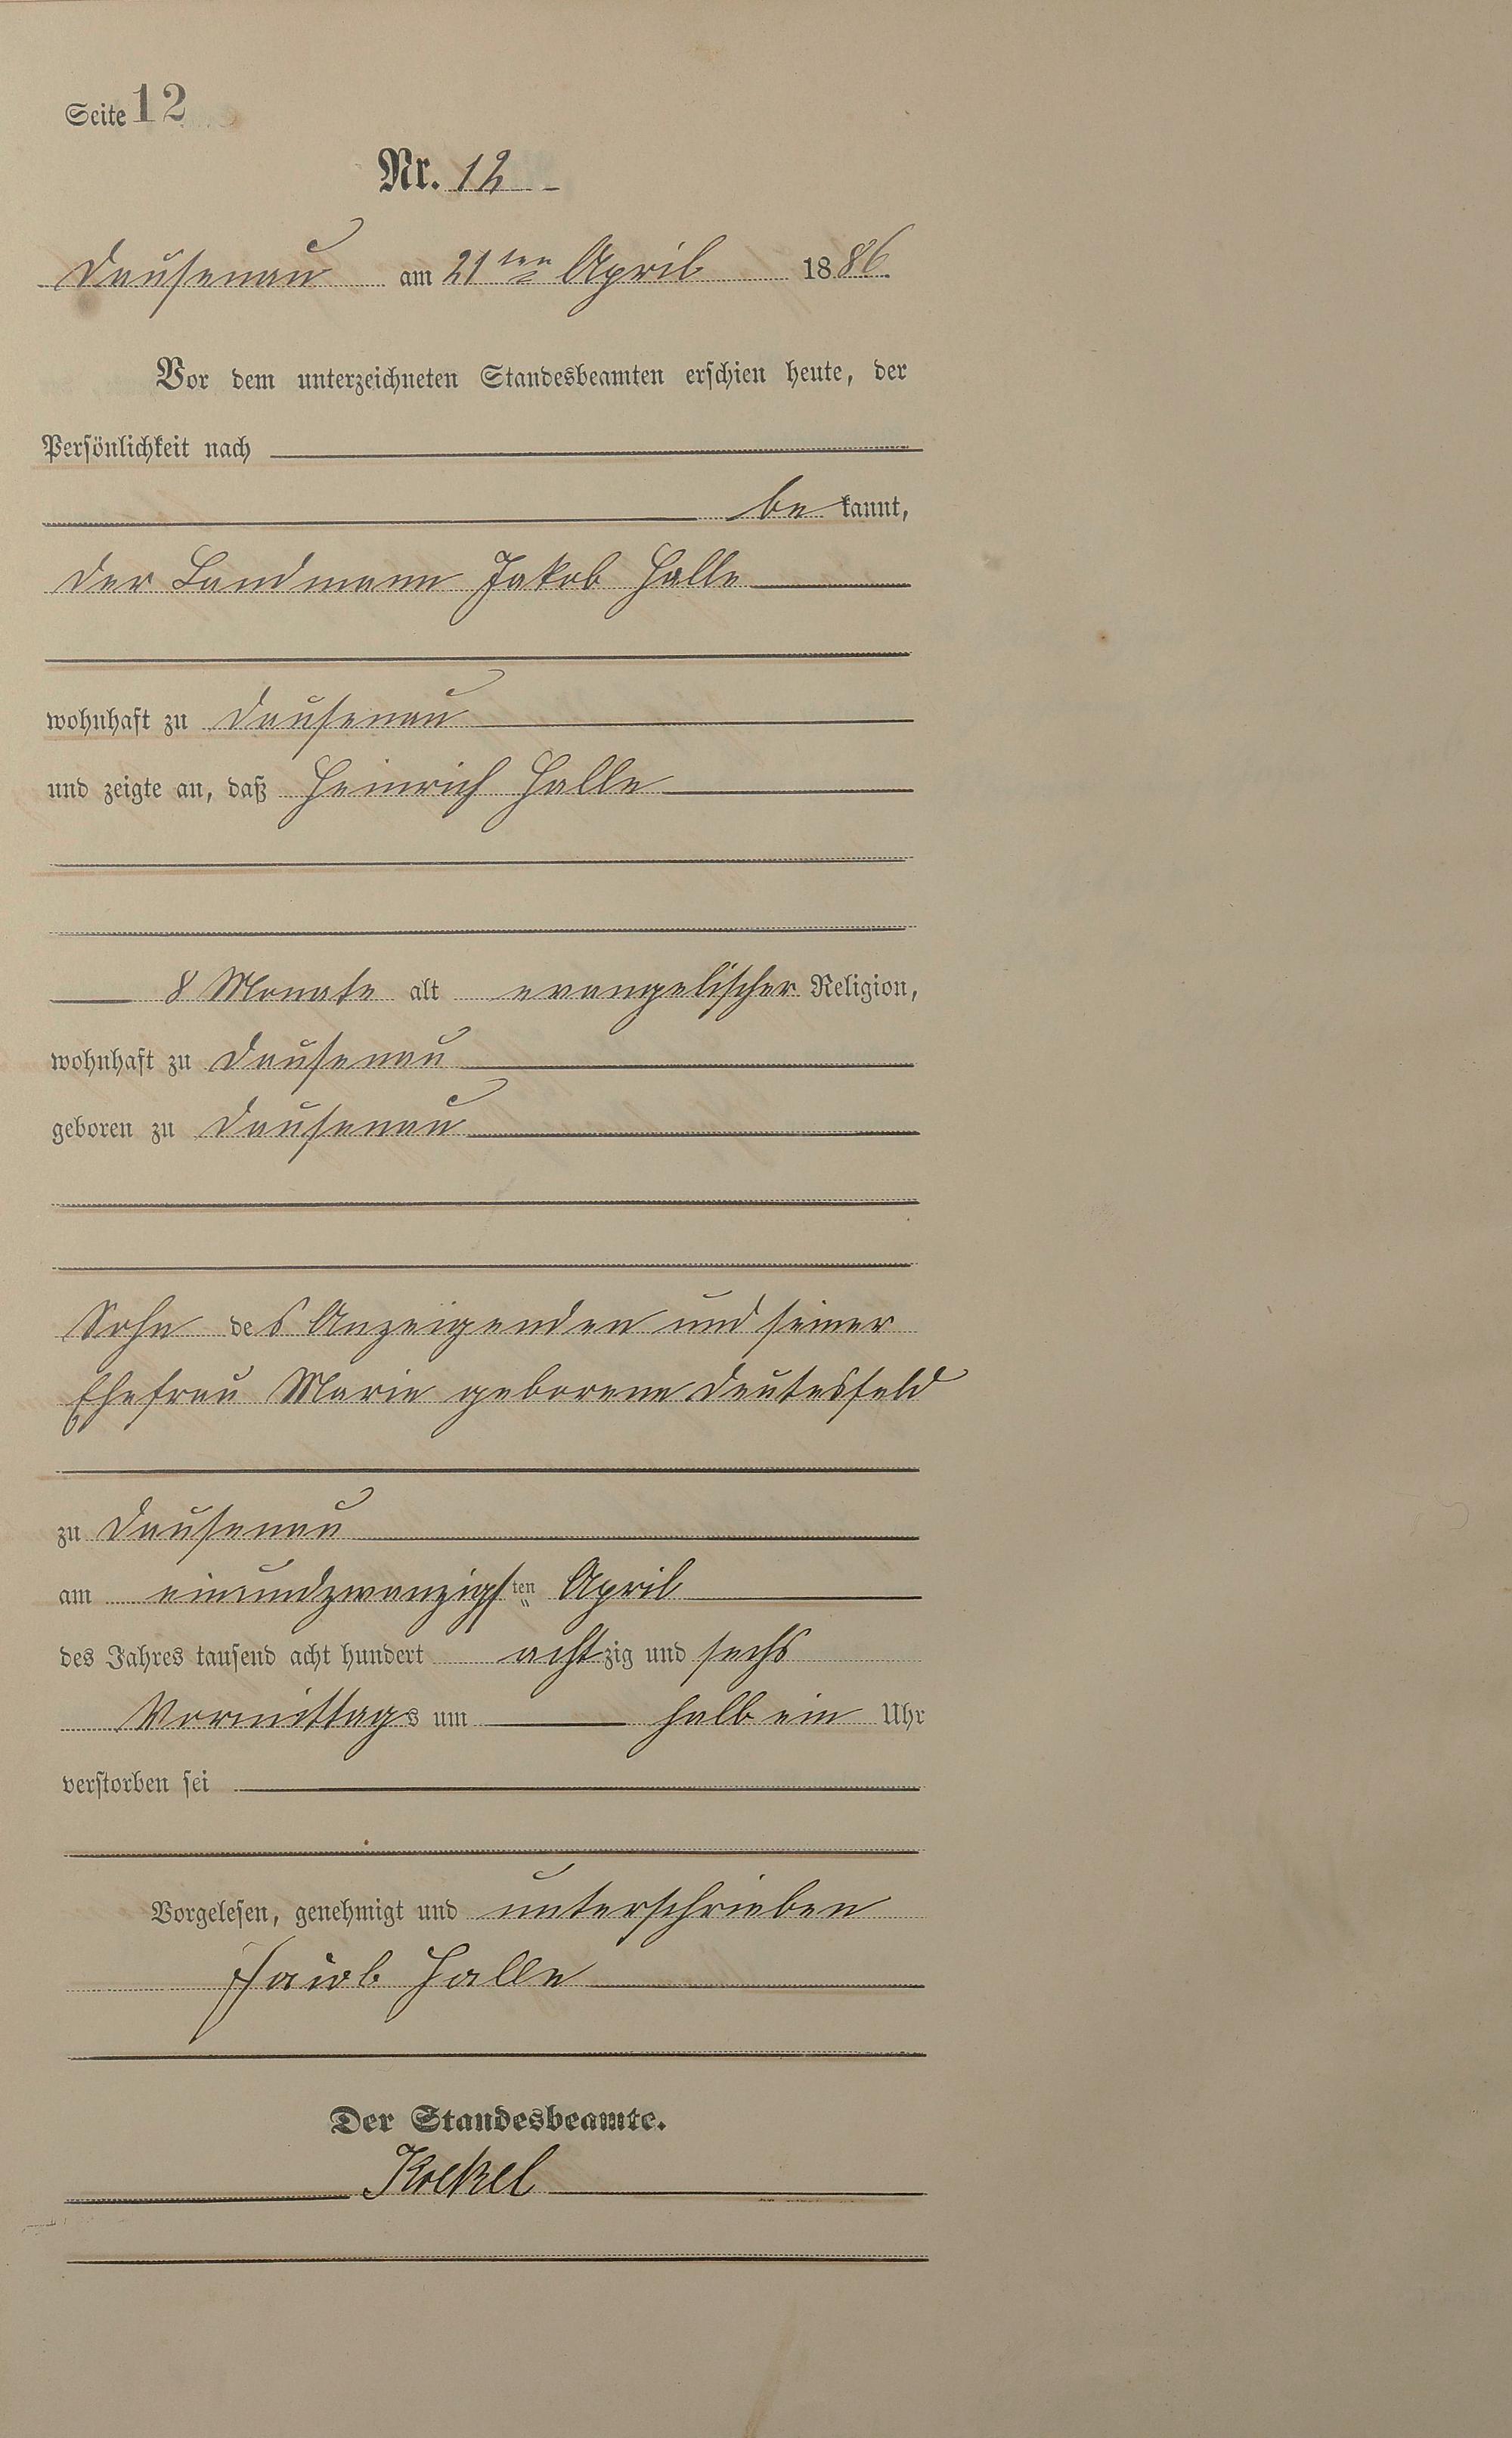 Seite 12
Nr. 12
Dausenau am 21ten April 1886.
Vor dem unterzeichneten Standesbeamten erschien heute, der
Persönlichkeit nach
be kannt,
der Landmann Jakob Halle
wohnhaft zu Dausenau
und zeigte an, daß Heinrich Halle
8 Monate alt evangelischer Religion,
wohnhaft zu Dausenau
geboren zu Dausenau
Sohn des Anzeigenden und seiner
Ehefrau Marie geborene Deutesfeld
zu Dausenau
am einundzwanzigsten April
des Jahres tausend acht hundert achtzig und sechs
Vormittags um halb ein Uhr
verstorben sei
Vorgelesen, genehmigt und unterschrieben
Halle
Der Standesbeamte.